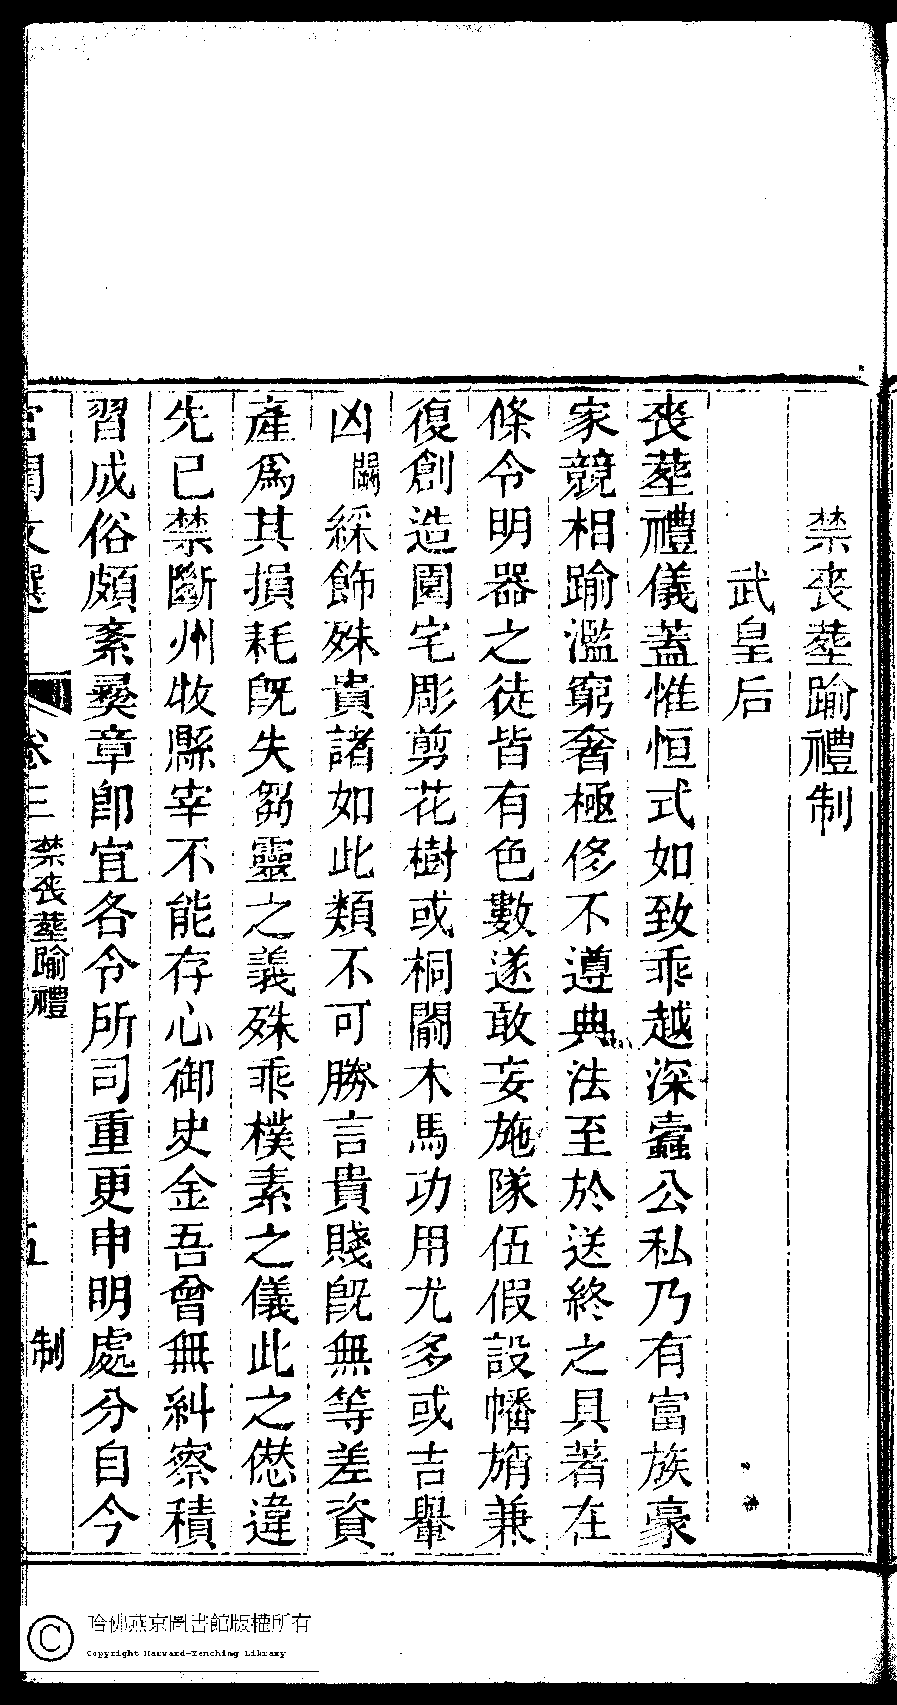 禁喪塟踰禮制
武皇后
喪塟禮儀蓋惟恒式如致乖越深蠧公私乃有富族豪
家競相踰濫窮奢極侈不遵典法至於送終之具著在
條令明器之徒皆有色數遂敢妄施隊伍假設幡旓兼
復創造園宅彫剪花樹或桐閽木馬功用尤多或吉轝
凶闕綵飾殊貴諸如此類不可勝言貴賤旣無等差資
產爲其損耗旣失芻靈之義殊乖樸素之儀此之僽違
先已禁斷州牧縣宰不能存心御史金吾曾無糾察積
習成俗頗紊彝章卽宜各令所司重更申明處分自今
宮閨文選 卷三 禁喪塟踰禮制 五
哈佛燕京圖書館版權所有
Copyright Harvard-Yenching Library